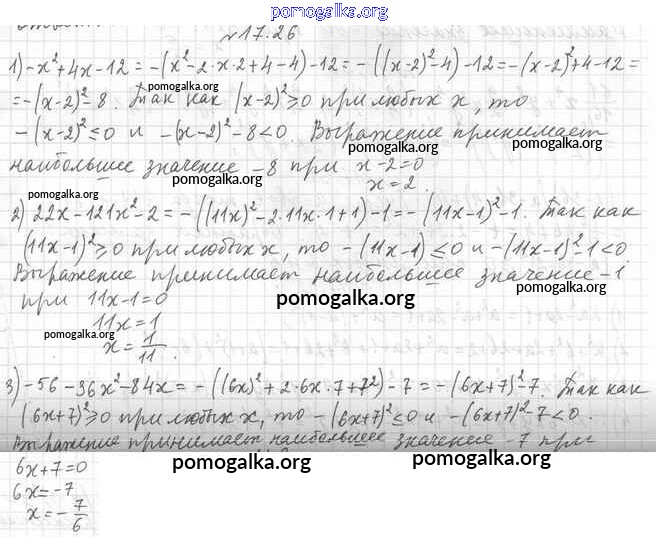 pomogalka.org
№17.26
1) -x²+4x-12 = -(x²-2·x·2+4-4)-12 = -((x-2)²-4)-12 = -(x-2)²+4-12 =
= -(x-2)²-8. Так как (x-2)²≥0 при любых x, то
pomogalka.org
-(x-2)²≤0 и -(x-2)²-8<0. Выражение принимает
pomogalka.org pomogalka.org
наибольшее значение -8 при x-2=0
pomogalka.org
x=2.
pomogalka.org
2) 22x-121x²-2 = -((11x)²-2·11x·1+1)-1 = -(11x-1)²-1. Так как
(11x-1)²≥0 при любых x, то -(11x-1)≤0 и -(11x-1)²-1<0.
Выражение принимает наибольшее значение -1
при 11x-1=0
pomogalka.org pomogalka.org
11x=1
pomogalka.org
x=1/11.
3) -56-36x²-84x = -((6x)²+2·6x·7+7²)-7 = -(6x+7)²-7. Так как
(6x+7)²≥0 при любых x, то -(6x+7)²≤0 и -(6x+7)²-7<0.
Выражение принимает наибольшее значение -7 при
pomogalka.org pomogalka.org
6x+7=0
6x=-7
x=-7/6